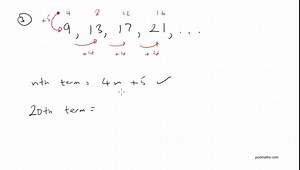 4 8 12 16
+5
2 9, 13, 17, 21, ...
+4 +4 +4
nth term = 4n + 5 ✓
20th term =
pixlmaths.com